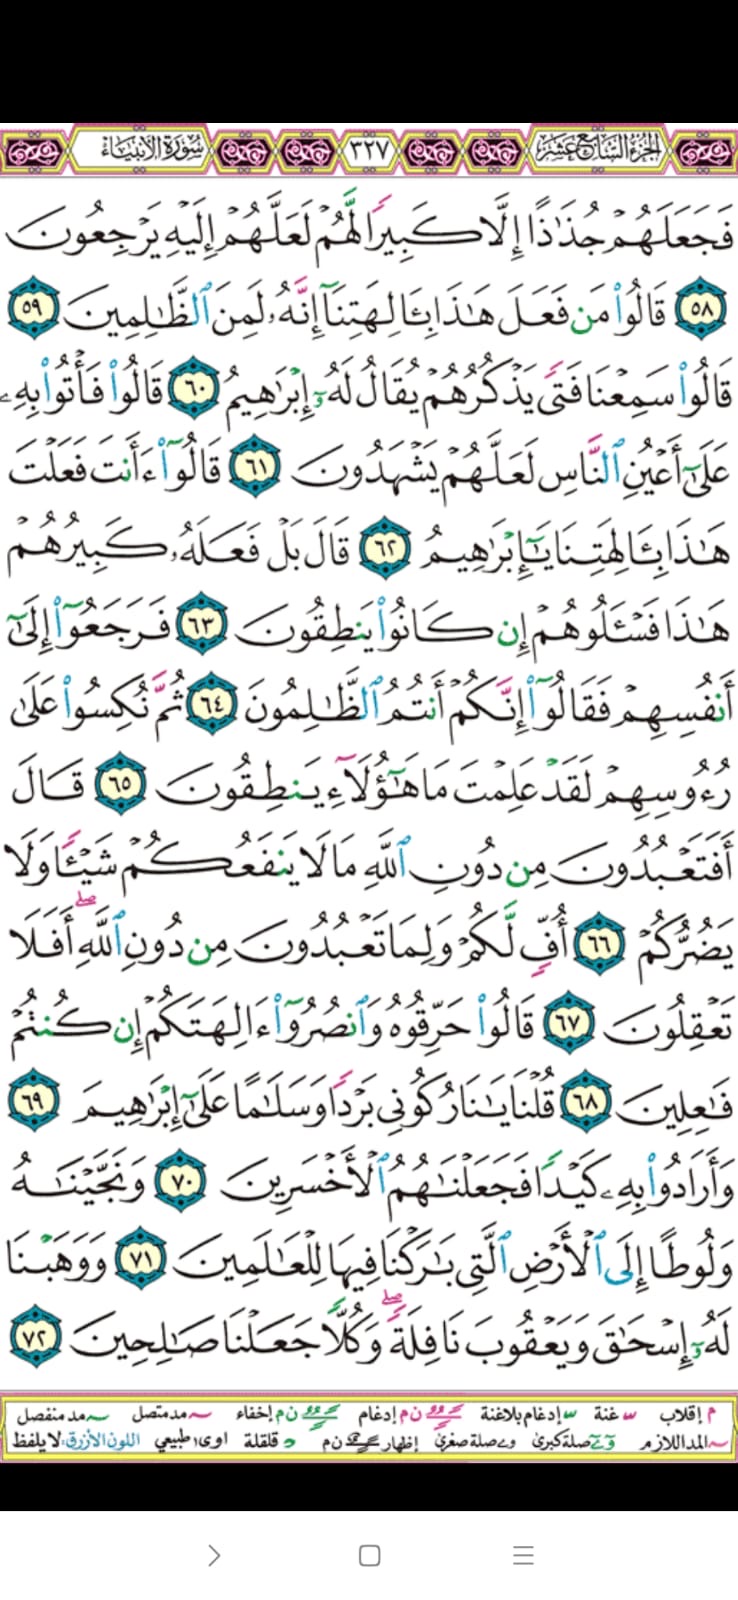 الجزء السابع عشر ٣٢٧ سورة الأنبياء
فَجَعَلَهُمْ جُذَٰذًا إِلَّا كَبِيرًا لَّهُمْ لَعَلَّهُمْ إِلَيْهِ يَرْجِعُونَ
٥٨ قَالُوا۟ مَن فَعَلَ هَٰذَا بِـَٔالِهَتِنَآ إِنَّهُۥ لَمِنَ ٱلظَّٰلِمِينَ ٥٩
قَالُوا۟ سَمِعْنَا فَتًى يَذْكُرُهُمْ يُقَالُ لَهُۥٓ إِبْرَٰهِيمُ ٦٠ قَالُوا۟ فَأْتُوا۟ بِهِۦ
عَلَىٰٓ أَعْيُنِ ٱلنَّاسِ لَعَلَّهُمْ يَشْهَدُونَ ٦١ قَالُوٓا۟ ءَأَنتَ فَعَلْتَ
هَٰذَا بِـَٔالِهَتِنَا يَٰٓإِبْرَٰهِيمُ ٦٢ قَالَ بَلْ فَعَلَهُۥ كَبِيرُهُمْ
هَٰذَا فَسْـَٔلُوهُمْ إِن كَانُوا۟ يَنطِقُونَ ٦٣ فَرَجَعُوٓا۟ إِلَىٰٓ
أَنفُسِهِمْ فَقَالُوٓا۟ إِنَّكُمْ أَنتُمُ ٱلظَّٰلِمُونَ ٦٤ ثُمَّ نُكِسُوا۟ عَلَىٰ
رُءُوسِهِمْ لَقَدْ عَلِمْتَ مَا هَٰٓؤُلَآءِ يَنطِقُونَ ٦٥ قَالَ
أَفَتَعْبُدُونَ مِن دُونِ ٱللَّهِ مَا لَا يَنفَعُكُمْ شَيْـًٔا وَلَا
يَضُرُّكُمْ ٦٦ أُفٍّ لَّكُمْ وَلِمَا تَعْبُدُونَ مِن دُونِ ٱللَّهِ ۖ أَفَلَا
تَعْقِلُونَ ٦٧ قَالُوا۟ حَرِّقُوهُ وَٱنصُرُوٓا۟ ءَالِهَتَكُمْ إِن كُنتُمْ
فَٰعِلِينَ ٦٨ قُلْنَا يَٰنَارُ كُونِى بَرْدًا وَسَلَٰمًا عَلَىٰٓ إِبْرَٰهِيمَ ٦٩
وَأَرَادُوا۟ بِهِۦ كَيْدًا فَجَعَلْنَٰهُمُ ٱلْأَخْسَرِينَ ٧٠ وَنَجَّيْنَٰهُ
وَلُوطًا إِلَى ٱلْأَرْضِ ٱلَّتِى بَٰرَكْنَا فِيهَا لِلْعَٰلَمِينَ ٧١ وَوَهَبْنَا
لَهُۥٓ إِسْحَٰقَ وَيَعْقُوبَ نَافِلَةً ۖ وَكُلًّا جَعَلْنَا صَٰلِحِينَ ٧٢
م إقلاب غنة إدغام بلاغنة ن م إدغام ن م إخفاء مد متصل مد منفصل
المد اللازم صلة كبرى صلة صغرى إظهار ن م قلقلة اوى طبيعي اللون الأزرق: لا يلفظ